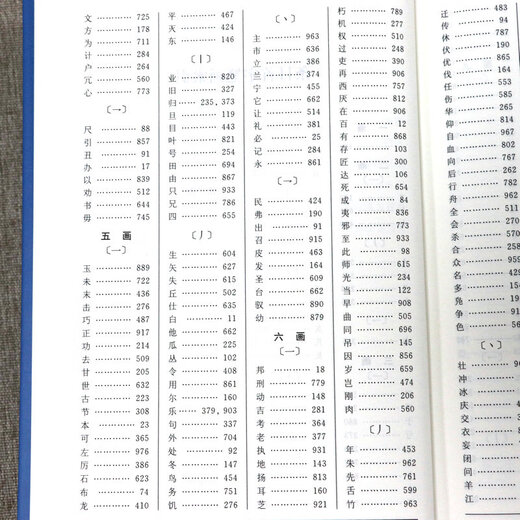 文 ………… 725
方 ………… 178
为 ………… 711
计 ………… 284
户 ………… 264
冗 ………… 560
心 ………… 773
〔一〕
尺 ………… 88
引 ………… 857
丑 ………… 91
办 ………… 17
以 ………… 839
劝 ………… 512
书 ………… 644
毋 ………… 745
五 画
〔一〕
玉 ………… 889
未 ………… 722
末 ………… 436
击 ………… 276
巧 ………… 487
正 ………… 917
功 ………… 214
去 ………… 509
甘 ………… 205
世 ………… 632
古 ………… 223
节 ………… 308
本 ………… 23
可 ………… 365
左 ………… 976
厉 ………… 386
石 ………… 623
布 ………… 74
龙 ………… 410
平 ………… 467
灭 ………… 424
东 ………… 146
〔丨〕
业 ………… 820
旧 ………… 327
归 …… 235, 373
旦 ………… 119
目 ………… 443
叶 ………… 821
号 ………… 254
田 ………… 694
由 ………… 867
只 ………… 933
兄 ………… 786
四 ………… 655
〔丿〕
生 ………… 604
矢 ………… 627
失 ………… 615
丘 ………… 502
仕 ………… 635
白 ………… 11
他 ………… 662
瓜 ………… 225
丛 ………… 102
令 ………… 408
用 ………… 861
尔 ………… 160
乐 …… 379, 903
句 ………… 337
外 ………… 704
处 ………… 92
冬 ………… 147
鸟 ………… 441
务 ………… 751
饥 ………… 276
〔丶〕
主 ………… 963
市 ………… 636
立 ………… 386
兰 ………… 375
宁 ………… 451
它 ………… 662
让 ………… 514
礼 ………… 381
必 ………… 25
记 ………… 284
永 ………… 861
〔一〕
民 ………… 424
弗 ………… 190
出 ………… 91
召 ………… 915
皮 ………… 463
发 ………… 164
圣 ………… 609
台 ………… 662
驭 ………… 890
幼 ………… 879
六 画
〔一〕
邦 ………… 18
刑 ………… 779
动 ………… 148
吉 ………… 281
考 ………… 362
老 ………… 377
执 ………… 931
地 ………… 136
扬 ………… 813
耳 ………… 160
芝 ………… 921
朽 ………… 789
机 ………… 277
权 ………… 510
过 ………… 248
吏 ………… 390
再 ………… 906
西 ………… 757
厌 ………… 812
在 ………… 906
百 ………… 12
有 ………… 868
存 ………… 103
匠 ………… 300
达 ………… 112
死 ………… 654
成 ………… 84
夷 ………… 836
邪 ………… 773
至 ………… 933
此 ………… 98
师 ………… 615
光 ………… 234
当 ………… 122
早 ………… 908
曲 ………… 505
同 ………… 696
吊 ………… 145
因 ………… 856
岁 ………… 659
岂 ………… 474
刚 ………… 206
肉 ………… 560
〔丿〕
年 ………… 453
朱 ………… 962
先 ………… 761
舌 ………… 599
竹 ………… 963
迁 ………… 483
传 ………… 94
休 ………… 787
伏 ………… 190
优 ………… 865
伐 ………… 164
任 ………… 55
伤 ………… 59
华 ………… 265
仰 ………… 814
自 ………… 967
血 ………… 80
向 ………… 767
后 ………… 261
行 ………… 782
舟 ………… 962
全 ………… 511
会 ………… 27
杀 ………… 570
合 ………… 258
众 ………… 959
名 ………… 429
多 ………… 15
凫 ………… 19
争 ………… 91
色 ………… 56
〔丶〕
壮 ………
冲 ………
冰 ………
庆 ………
交 ………
衣 ………
妄 ………
闭 ………
问 ………
羊 ………
江 ………